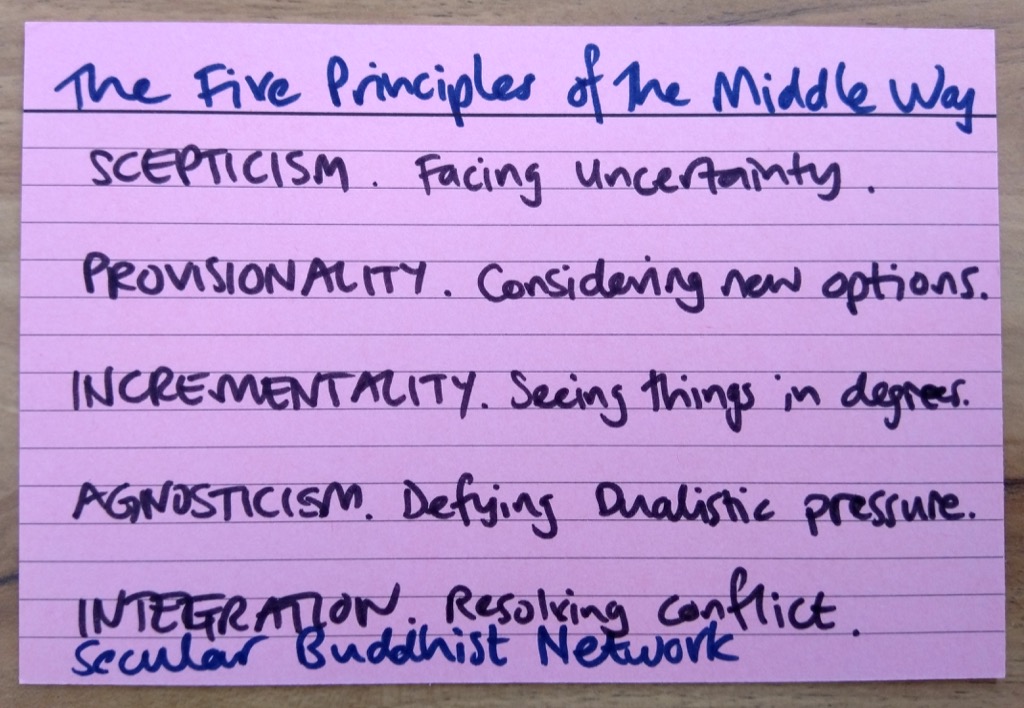 The Five Principles of The Middle Way
SCEPTICISM. Facing Uncertainty.
PROVISIONALITY. Considering new options.
INCREMENTALITY. Seeing things in degrees.
AGNOSTICISM. Defying Dualistic pressure.
INTEGRATION. Resolving conflict.
Secular Buddhist Network